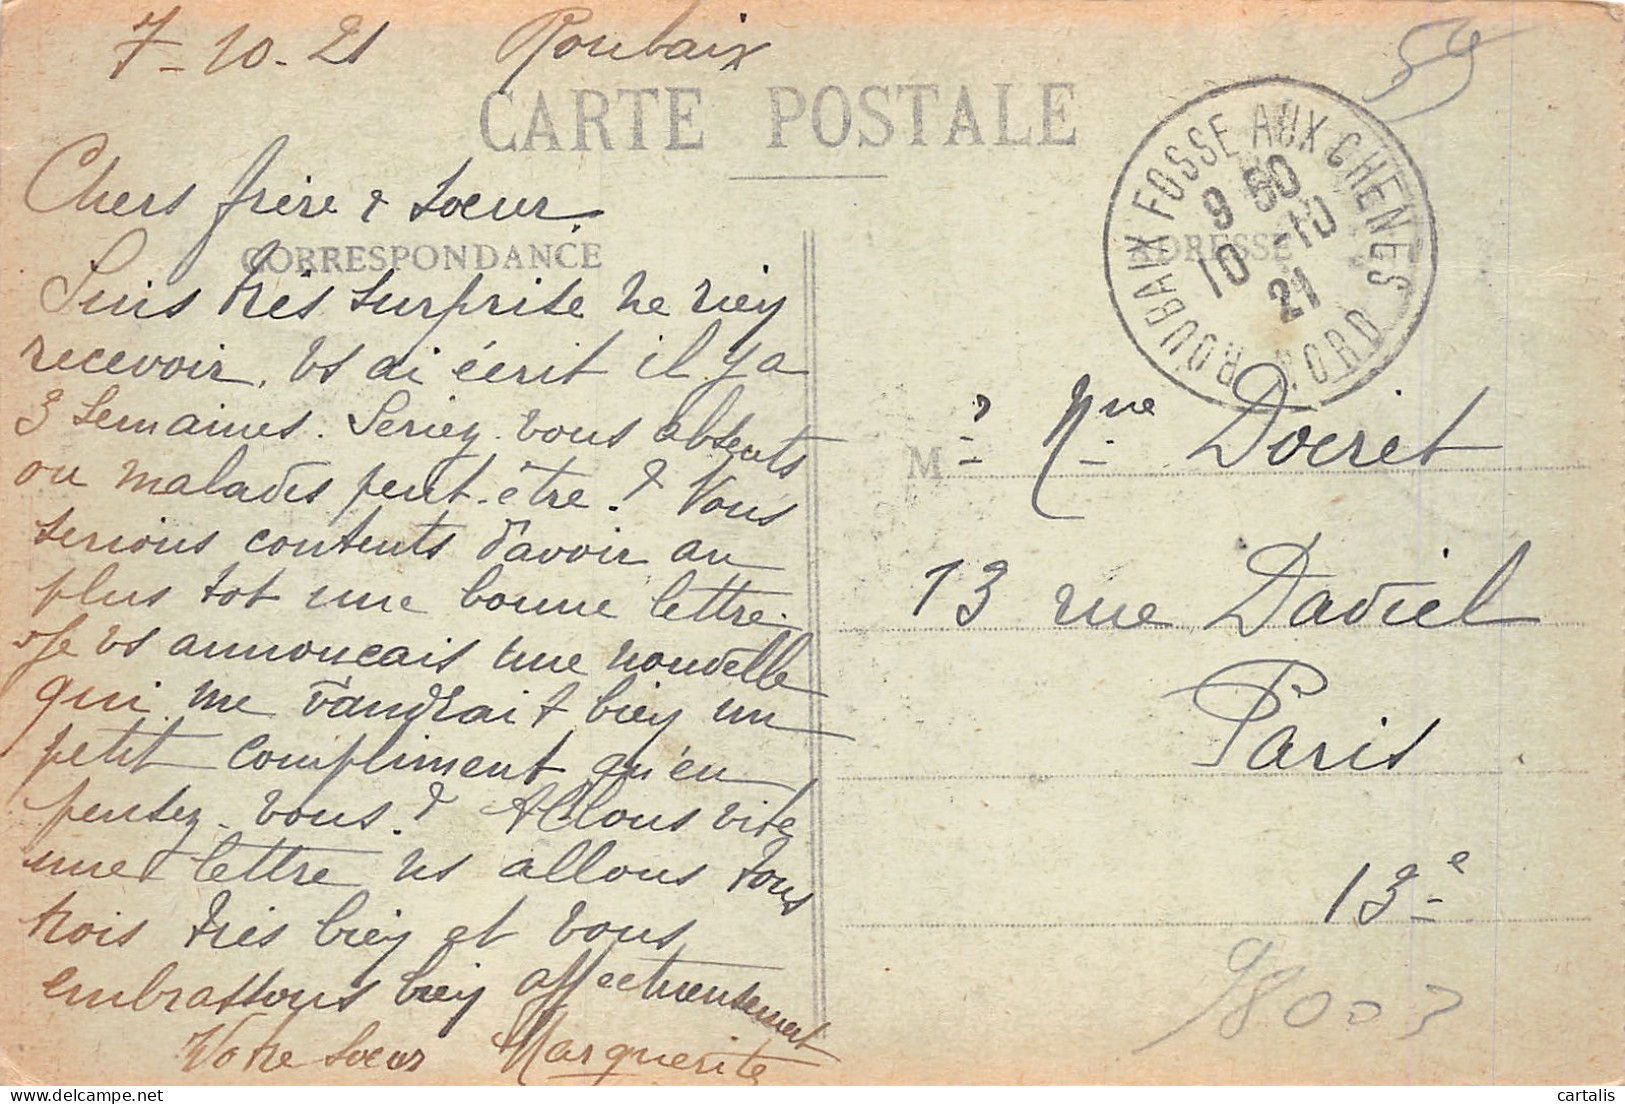 7-10-21 Roubaix
59
CARTE POSTALE
Chers frère & soeur
CORRESPONDANCE
Suis très surprise ne rien
recevoir, vs ai écrit il y a
3 semaines. Seriez-vous absents
ou malades peut-être ? Vous
serions contents d'avoir au
plus tot une bonne lettre.
Je vs annonçais une nouvelle
qui me vaudrait bien un
petit compliment qu'en
pensez-vous ? Allons vite
une lettre ns allons tous
trois très bien et vous
embrassons bien affectueusement
Votre soeur Marguerite
ROUBAIX FOSSE AUX CHENES
9 50
10 -10
21
NORD
ADRESSE
M
Doeret
13 rue Daviel
Paris
13e
cartalis
delcampe.net